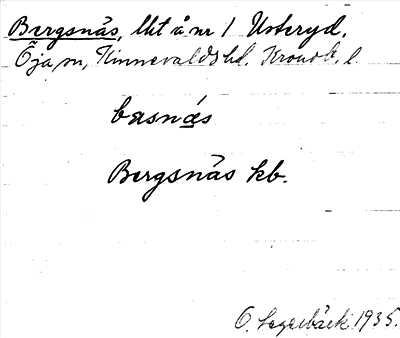 Bergsnäs, lht å nr 1 Usteryd,
Öja sn, Kinnevalds hd. Kronob. l.
basnä̱s
Bergsnäs kb.
O. Lagerbäck 1935.